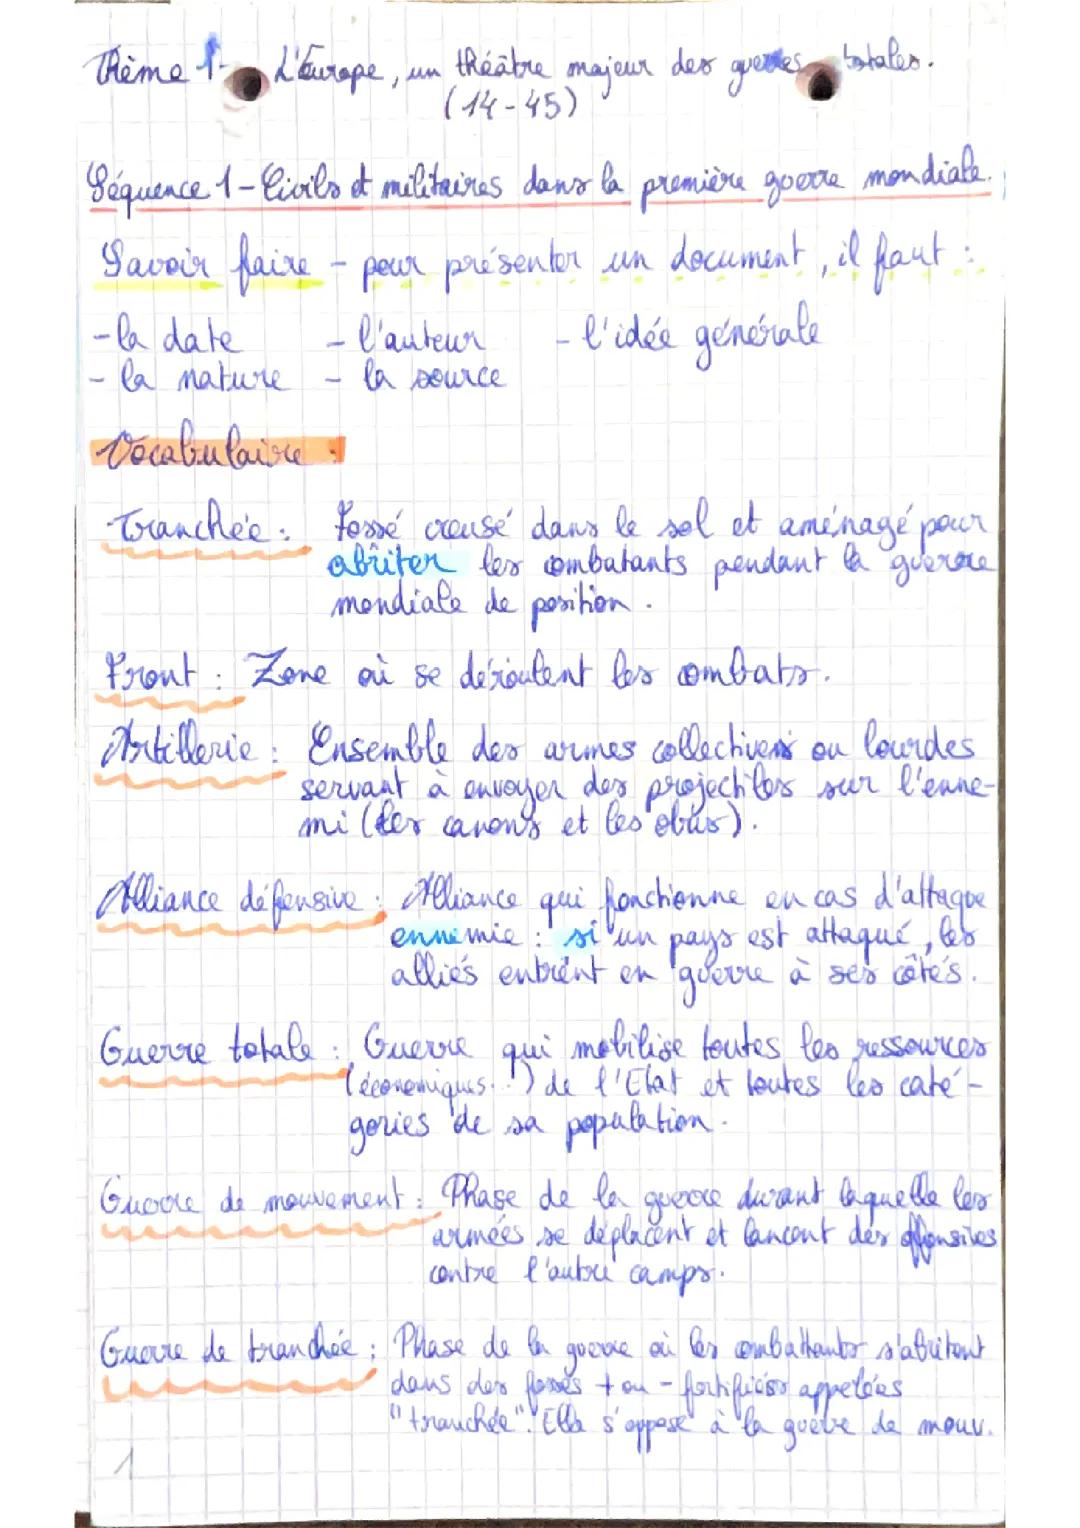 Thème 1- L'Europe, un théâtre majeur des guerres totales.
(14-45)
Séquence 1- Civils et militaires dans la première guerre mondiale.
Savoir faire - pour présenter un document, il faut :
- la date - l'auteur - l'idée générale
- la nature - la source
Vocabulaire :
Tranchée : Fossé creusé dans le sol et aménagé pour
abriter les combatants pendant la guerre
mondiale de position.
Front : Zone où se déroulent les combats.
Artillerie : Ensemble des armes collectives ou lourdes
servant à envoyer des projectiles sur l'enne-
mi (les canons et les obus).
Alliance défensive : Alliance qui fonctionne en cas d'attaque
ennemie : si un pays est attaqué, les
alliés entrent en guerre à ses côtés.
Guerre totale : Guerre qui mobilise toutes les ressources
(économiques...) de l'Etat et toutes les caté-
gories de sa population.
Guerre de mouvement : Phase de la guerre durant laquelle les
armées se déplacent et lancent des offensives
contre l'autre camps.
Guerre de tranchée : Phase de la guerre où les combattants s'abritent
dans des fossés + ou - fortifiés appelées
"tranchée". Elle s'oppose à la guerre de mouv.
1